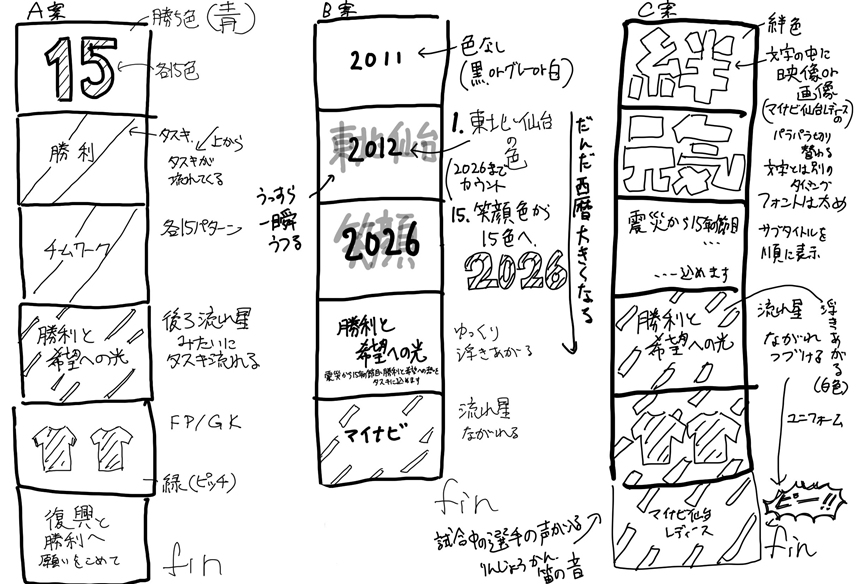 A案
勝ち色(青)
15
各15色
勝利
タスキ
上から
タスキが
流れてくる
チムワーク
各15パターン
勝利と
希望への光
後ろ流れ星
みたいに
タスキ流れる
FP/GK
緑(ピッチ)
復興と
勝利へ
願いをこめて
fin
B案
2011
色なし
(黒orグレーor白)
東北仙台
2012
1. 東北い仙台
の
色
2026まで
カウント
うっすら
一瞬
うつる
笑顔
2026
15. 笑顔色から
15色へ
2026
だんだ西暦大きくなる
勝利と
希望への光
震災から15年の節目、勝利と希望への想いを
タスキに込めます
ゆっくり
浮きあがる
マイナビ
流れ星
ながれる
fin
C案
絆
絆色
文字の中に
映像or
画像
(マイナビ仙台レディースの)
元気
パラパラ切り
替わる
文字とは別の
タイミング
フォントは太め
震災から15年の節目
...
...込めます
サブタイトルを
順に表示
勝利と
希望への光
流れ星
ながれ
つづける
浮きあがる
(白色)
ユニフォーム
マイナビ仙台
レディース
ピー!!
fin
試合中の選手の声がいる
りんじょうかん
笛の音